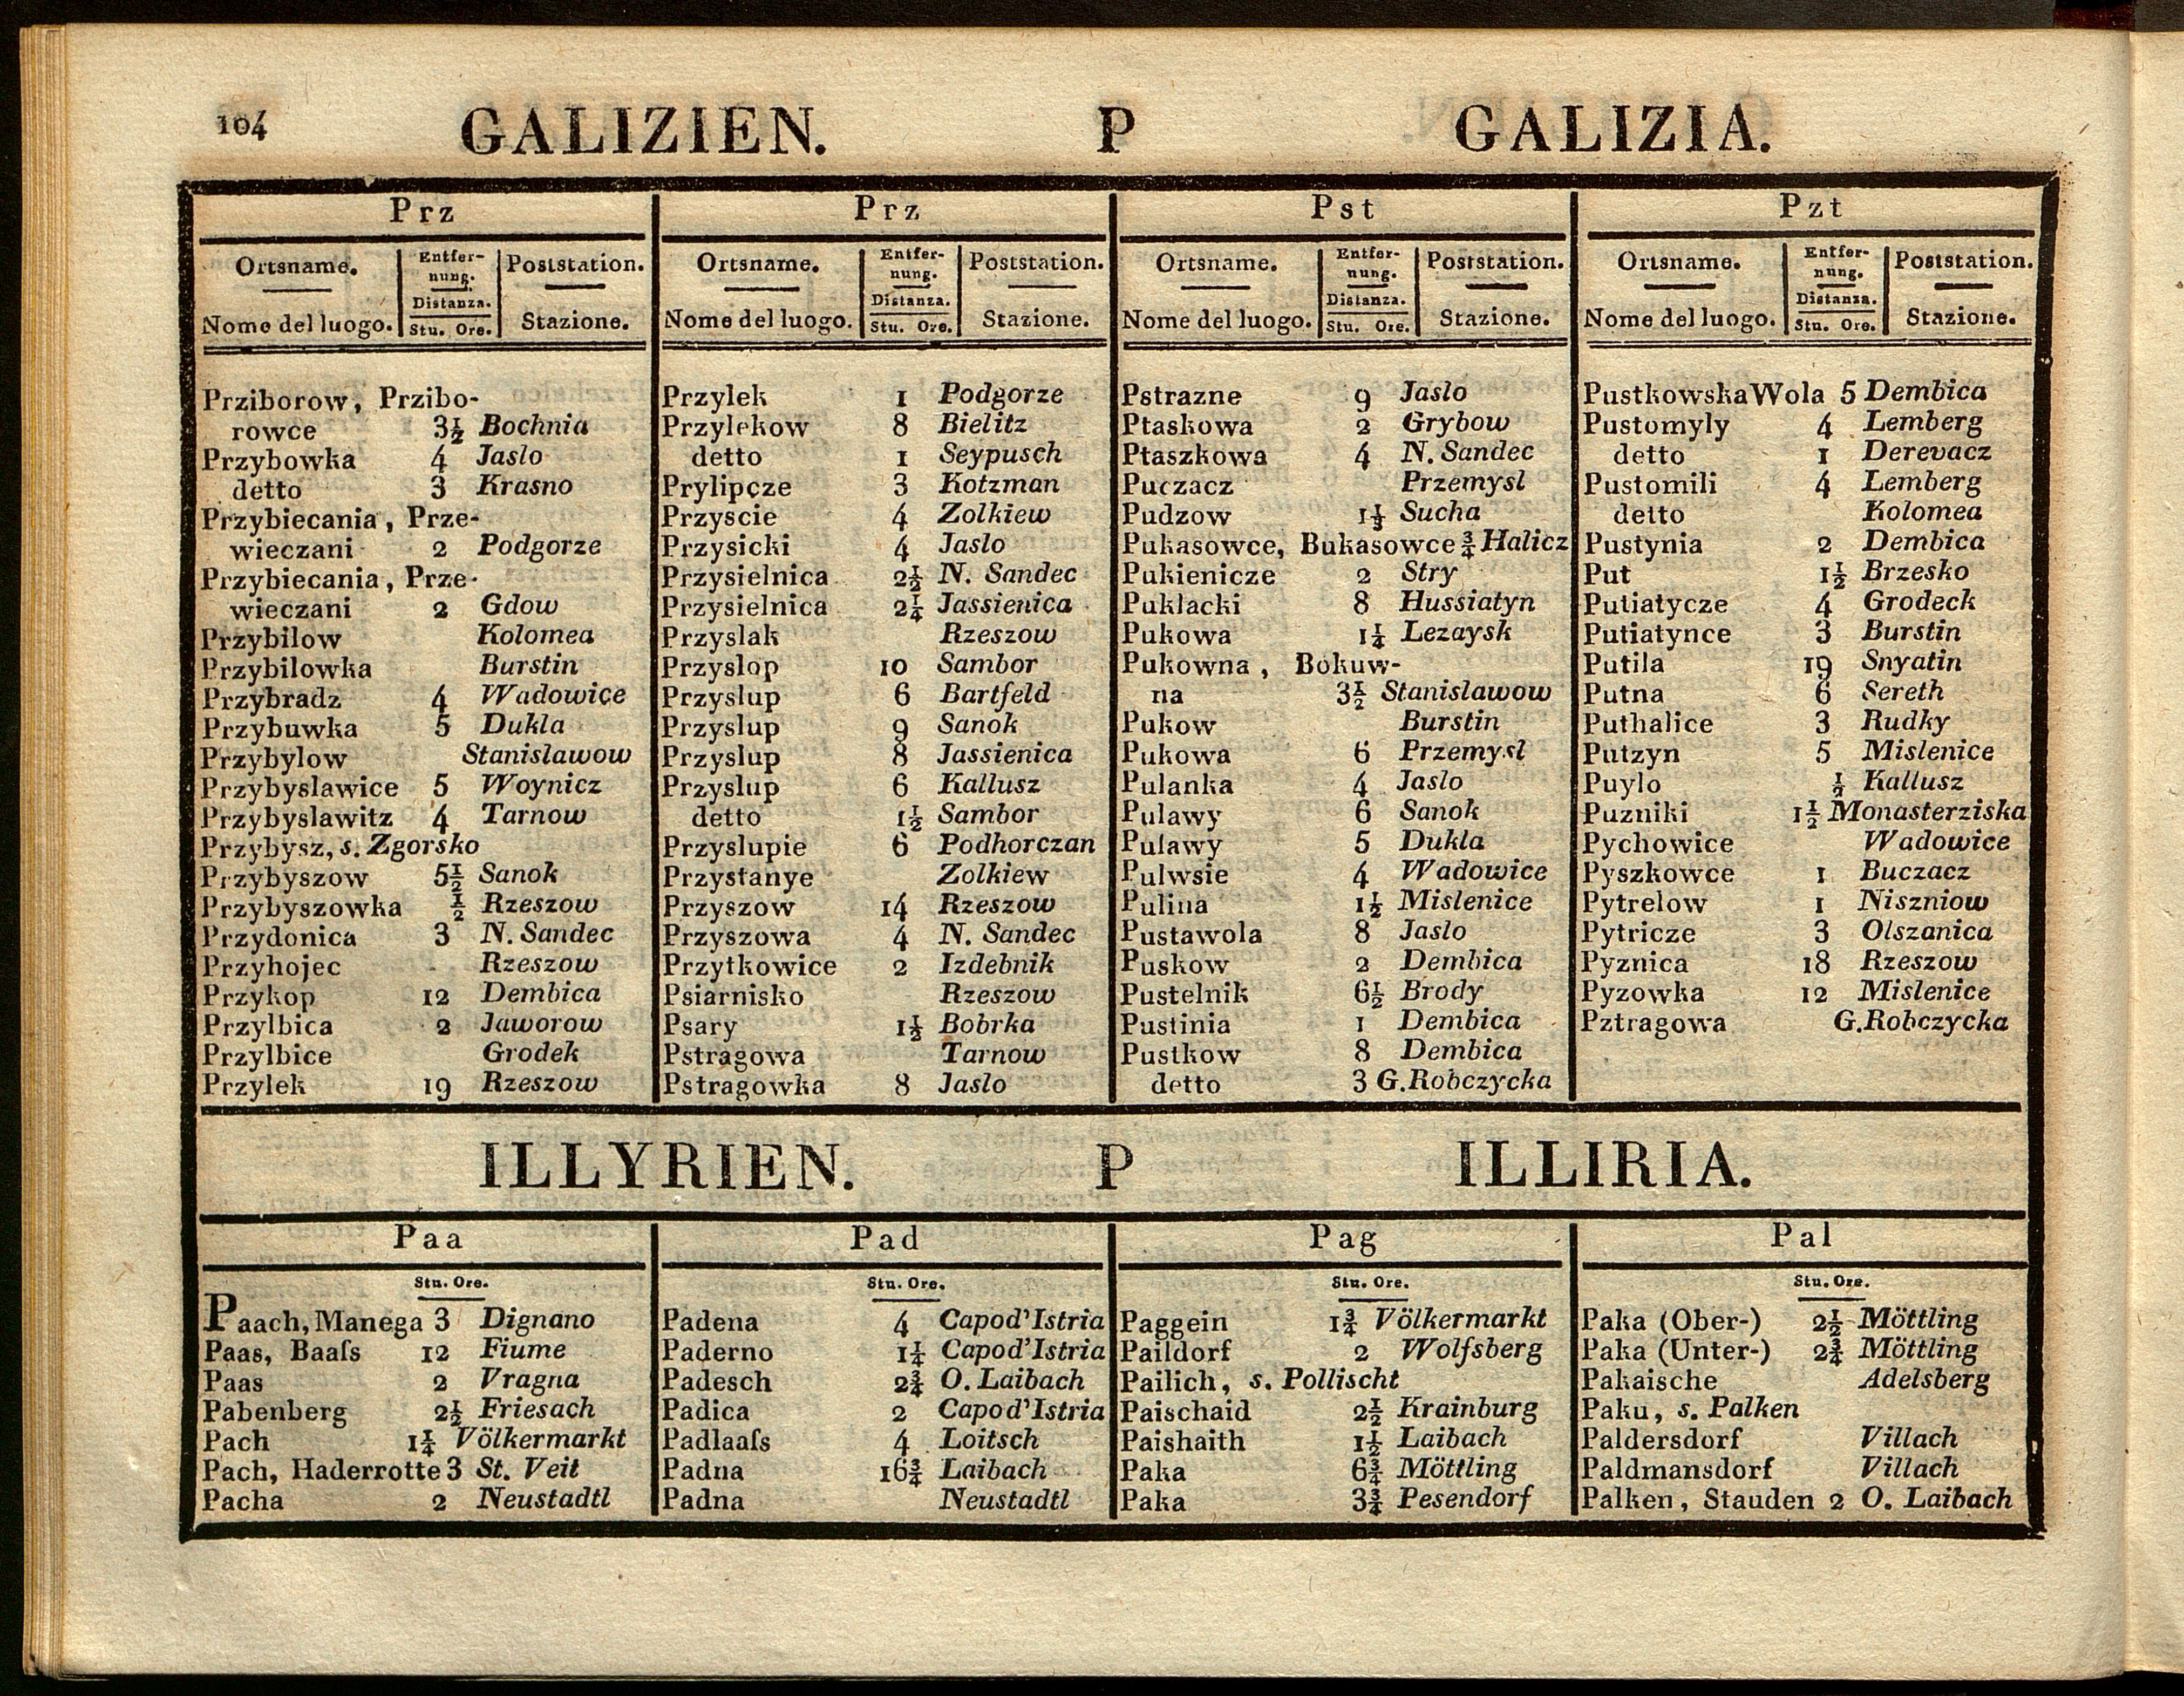 104
GALIZIEN. P GALIZIA.
Prz
Ortsname. Entfer- Poststation.
nung.
Distanza.
Nome del luogo. Stu. Ore. Stazione.
Prziborow, Przibo-
rowce 3½ Bochnia
Przybowka 4 Jaslo
detto 3 Krasno
Przybiecania, Prze-
wieczani 2 Podgorze
Przybiecania, Prze-
wieczani 2 Gdow
Przybilow Kolomea
Przybilowka Burstin
Przybradz 4 Wadowice
Przybuwka 5 Dukla
Przybylow Stanislawow
Przybyslawice 5 Woynicz
Przybyslawitz 4 Tarnow
Przybysz, s. Zgorsko
Przybyszow 5½ Sanok
Przybyszowka ½ Rzeszow
Przydonica 3 N. Sandec
Przyhojec Rzeszow
Przykop 12 Dembica
Przylbica 2 Jaworow
Przylbice Grodek
Przylek 19 Rzeszow
Prz
Ortsname. Entfer- Poststation.
nung.
Distanza.
Nome del luogo. Stu. Ore. Stazione.
Przylek 1 Podgorze
Przylekow 8 Bielitz
detto 1 Seypusch
Prylipcze 3 Kotzman
Przyscie 4 Zolkiew
Przysicki 4 Jaslo
Przysielnica 2½ N. Sandec
Przysielnica 2¼ Jassienica
Przyslak Rzeszow
Przyslop 10 Sambor
Przyslup 6 Bartfeld
Przyslup 9 Sanok
Przyslup 8 Jassienica
Przyslup 6 Kallusz
detto 1½ Sambor
Przyslupie 6 Podhorczan
Przystanye Zolkiew
Przyszow 14 Rzeszow
Przyszowa 4 N. Sandec
Przytkowice 2 Izdebnik
Psiarnisko Rzeszow
Psary 1½ Bobrka
Pstragowa Tarnow
Pstragowka 8 Jaslo
Pst
Ortsname. Entfer- Poststation.
nung.
Distanza.
Nome del luogo. Stu. Ore. Stazione.
Pstrazne 9 Jaslo
Ptaskowa 2 Grybow
Ptaszkowa 4 N. Sandec
Puczacz Przemysl
Pudzow 1⅓ Sucha
Pukasowce, Bukasowce ¾ Halicz
Pukienicze 2 Stry
Puklacki 8 Hussiatyn
Pukowa 1¼ Lezaysk
Pukowna, Bokuw-
na 3½ Stanislawow
Pukow Burstin
Pukowa 6 Przemysl
Pulanka 4 Jaslo
Pulawy 6 Sanok
Pulawy 5 Dukla
Pulwsie 4 Wadowice
Pulina 1½ Mislenice
Pustawola 8 Jaslo
Puskow 2 Dembica
Pustelnik 6½ Brody
Pustinia 1 Dembica
Pustkow 8 Dembica
detto 3 G. Robczycka
Pzt
Ortsname. Entfer- Poststation.
nung.
Distanza.
Nome del luogo. Stu. Ore. Stazione.
Pustkowska Wola 5 Dembica
Pustomyly 4 Lemberg
detto 1 Derevacz
Pustomili 4 Lemberg
detto Kolomea
Pustynia 2 Dembica
Put 1½ Brzesko
Putiatycze 4 Grodeck
Putiatynce 3 Burstin
Putila 19 Snyatin
Putna 6 Sereth
Puthalice 3 Rudky
Putzyn 5 Mislenice
Puylo ½ Kallusz
Puzniki 1½ Monasterziska
Pychowice Wadowice
Pyszkowce 1 Buczacz
Pytrelow 1 Niszniow
Pytricze 3 Olszanica
Pyznica 18 Rzeszow
Pyzowka 12 Mislenice
Pztragowa G. Robczycka
ILLYRIEN. P ILLIRIA.
Paa
Stu. Ore.
Paach, Manega 3 Dignano
Paas, Baaſs 12 Fiume
Paas 2 Vragna
Pabenberg 2½ Friesach
Pach 1¼ Völkermarkt
Pach, Haderrotte 3 St. Veit
Pacha 2 Neustadtl
Pad
Stu. Ore.
Padena 4 Capod'Istria
Paderno 1¼ Capod'Istria
Padesch 2¾ O. Laibach
Padica 2 Capod'Istria
Padlaaſs 4 Loitsch
Padna 16¾ Laibach
Padna Neustadtl
Pag
Stu. Ore.
Paggein 1¾ Völkermarkt
Paildorf 2 Wolfsberg
Pailich, s. Pollischt
Paischaid 2½ Krainburg
Paishaith 1½ Laibach
Paka 6¾ Möttling
Paka 3¾ Pesendorf
Pal
Stu. Ore.
Paka (Ober-) 2½ Möttling
Paka (Unter-) 2¾ Möttling
Pakaische Adelsberg
Paku, s. Palken
Paldersdorf Villach
Paldmansdorf Villach
Palken, Stauden 2 O. Laibach